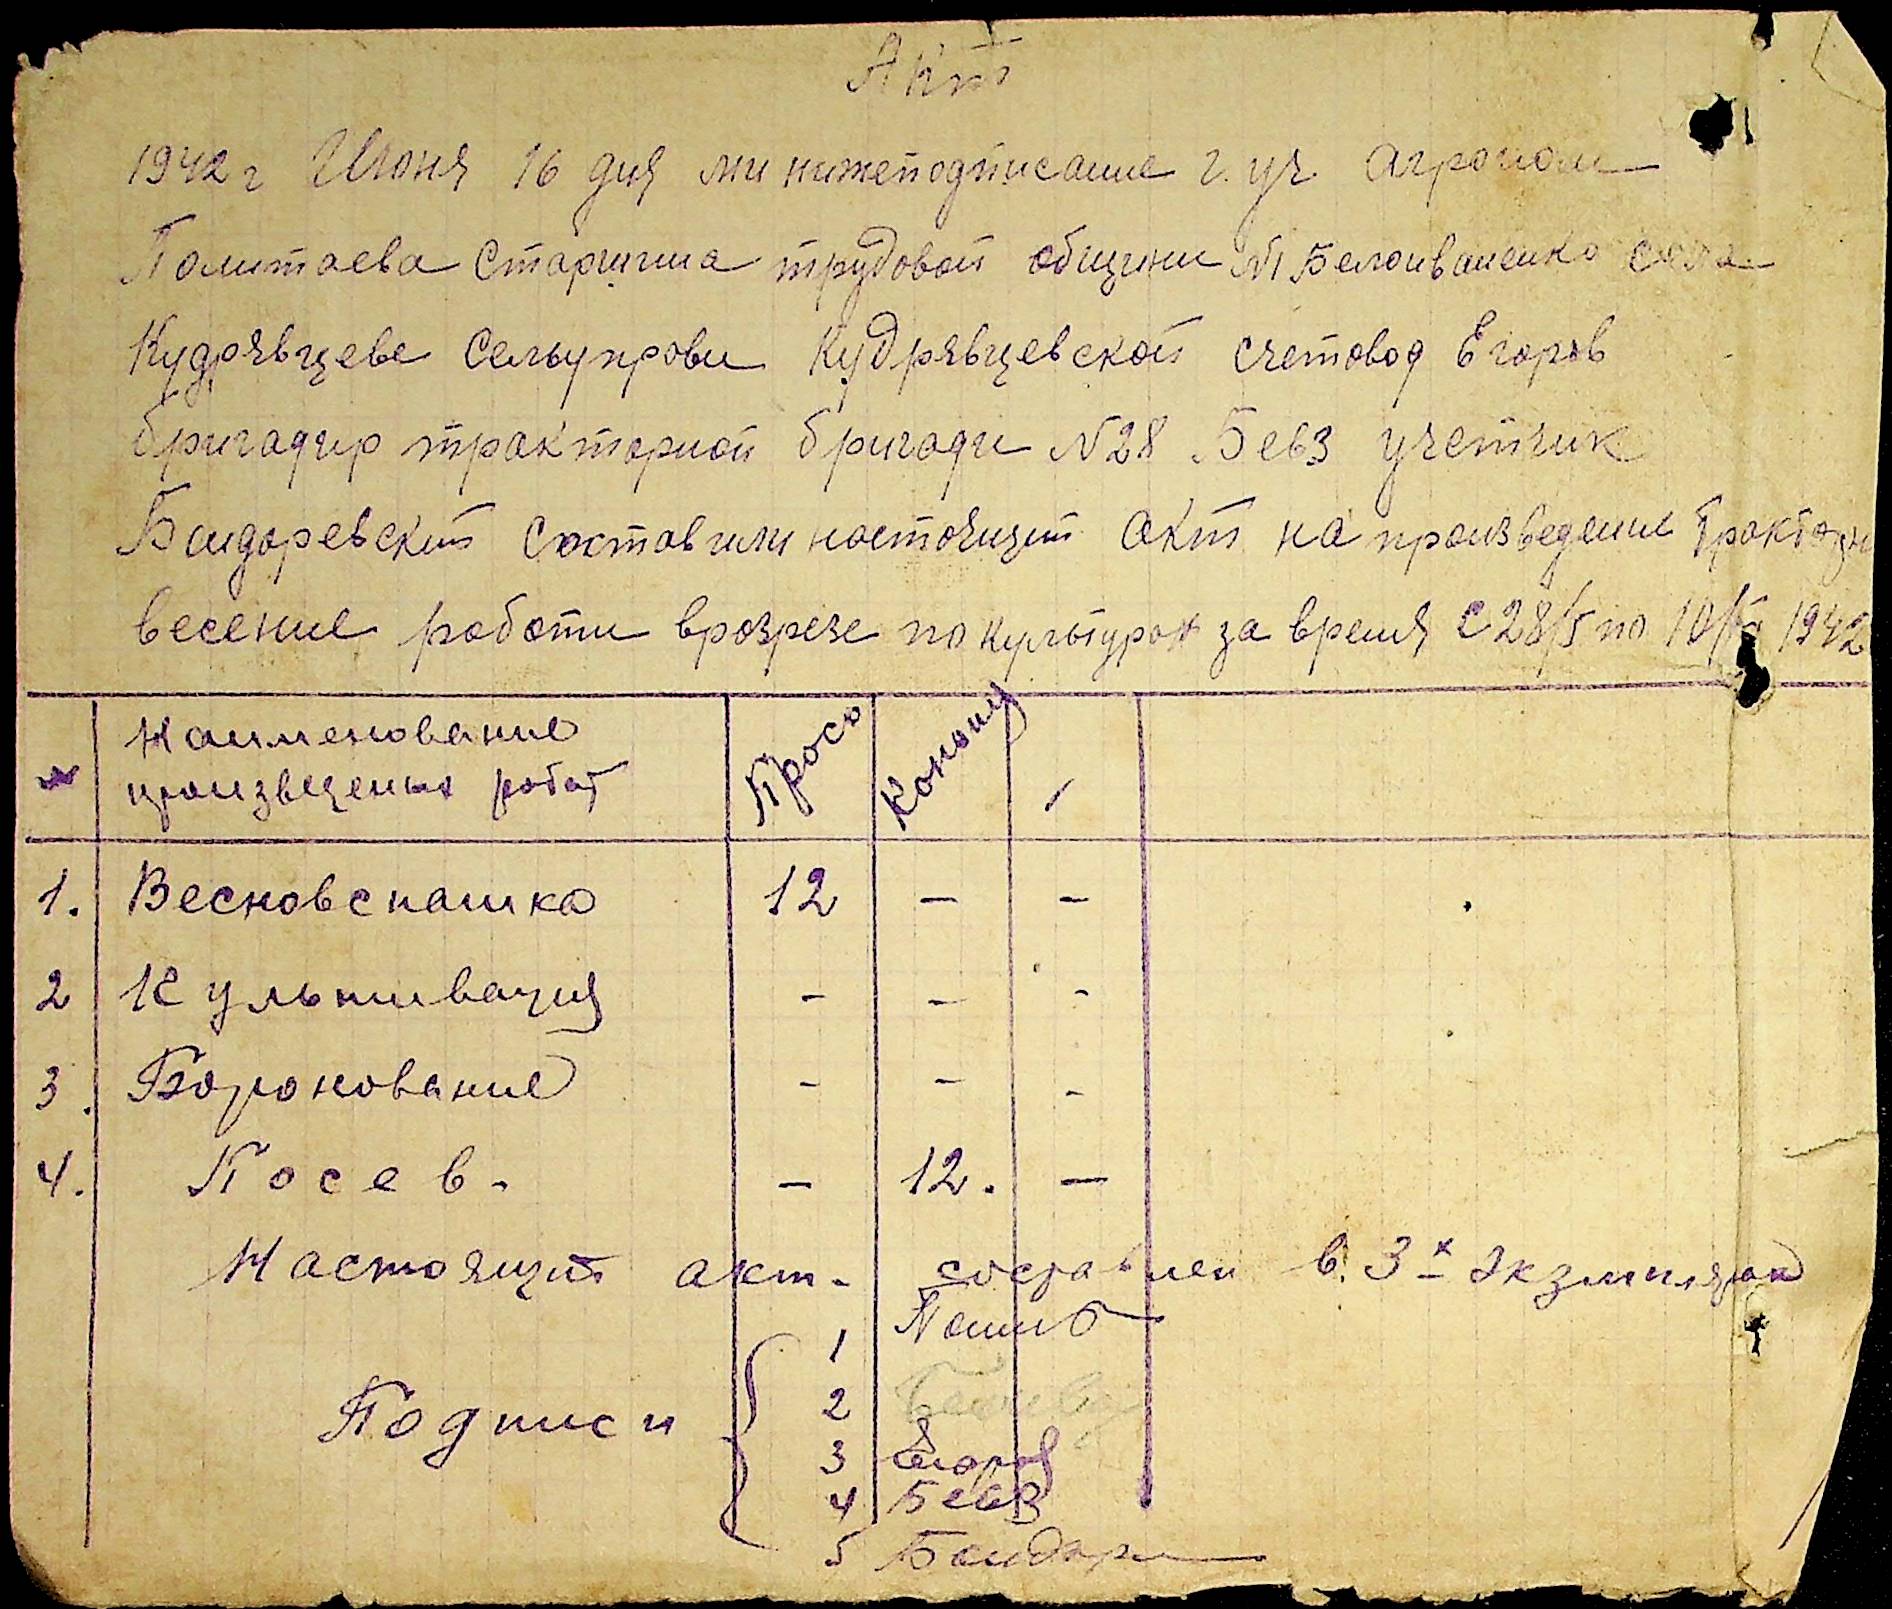 Акт
1942 г Июня 16 дня ми нижеподписание г. уч. агроном
Полтаева Старшина трудовой общини №1 Белоиваненко села
Кудрявцеве Сельупрови Кудрявцевской счетовод Егоров
бригадир тракторной бригади №28 Бевз учетчик
Бондаревский составили настоящий акт на произведение
весение роботи вразрезе по культурах за время С 28/5 по 10/VI 1942
Наименование Просо Коноплі
произведеных работ
1. Весновспашка 12 - -
2 Культивация - - -
3. Боронование - - -
4. Посев. - 12. -
Настоящий акт. составлен в. 3х экземплярах
1
Подписи 2
3 Егоров
4 Бевз
5 Бондар